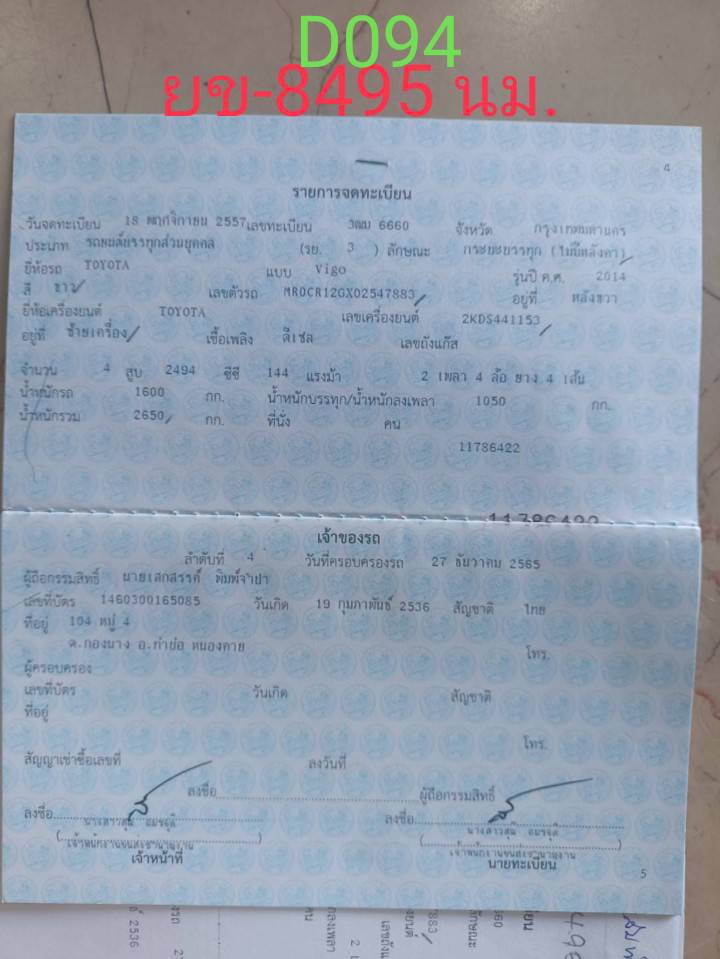 D094
ยข-8495 นม.
4
รายการจดทะเบียน
วันจดทะเบียน 18 พฤศจิกายน 2557 เลขทะเบียน 3ฒฌ 6660 จังหวัด กรุงเทพมหานคร
ประเภท รถยนต์บรรทุกส่วนบุคคล (รย. 3 ) ลักษณะ กระบะบรรทุก (ไม่มีหลังคา)
ยี่ห้อรถ TOYOTA แบบ Vigo รุ่นปี ค.ศ. 2014
สี ขาว เลขตัวรถ MR0CR12GX02547883 อยู่ที่ หลังขวา
ยี่ห้อเครื่องยนต์ TOYOTA เลขเครื่องยนต์ 2KDS441153
อยู่ที่ ซ้ายเครื่อง เชื้อเพลิง ดีเซล เลขถังแก๊ส
จำนวน 4 สูบ 2494 ซีซี 144 แรงม้า 2 เพลา 4 ล้อ ยาง 4 เส้น
น้ำหนักรถ 1600 กก. น้ำหนักบรรทุก/น้ำหนักลงเพลา 1050 กก.
น้ำหนักรวม 2650 กก. ที่นั่ง คน
11786422
11786422
เจ้าของรถ
ลำดับที่ 4 วันที่ครอบครองรถ 27 ธันวาคม 2565
ผู้ถือกรรมสิทธิ์ นายเสกสรรค์ พิมพ์จำปา
เลขที่บัตร 1460300165085 วันเกิด 19 กุมภาพันธ์ 2536 สัญชาติ ไทย
ที่อยู่ 104 หมู่ 4
ต.กองนาง อ.ท่าบ่อ หนองคาย โทร.
ผู้ครอบครอง
เลขที่บัตร วันเกิด สัญชาติ
ที่อยู่
โทร.
สัญญาเช่าซื้อเลขที่ ลงวันที่
ลงชื่อ ผู้ถือกรรมสิทธิ์
ลงชื่อ ลงชื่อ
เจ้าหน้าที่ นายทะเบียน
5